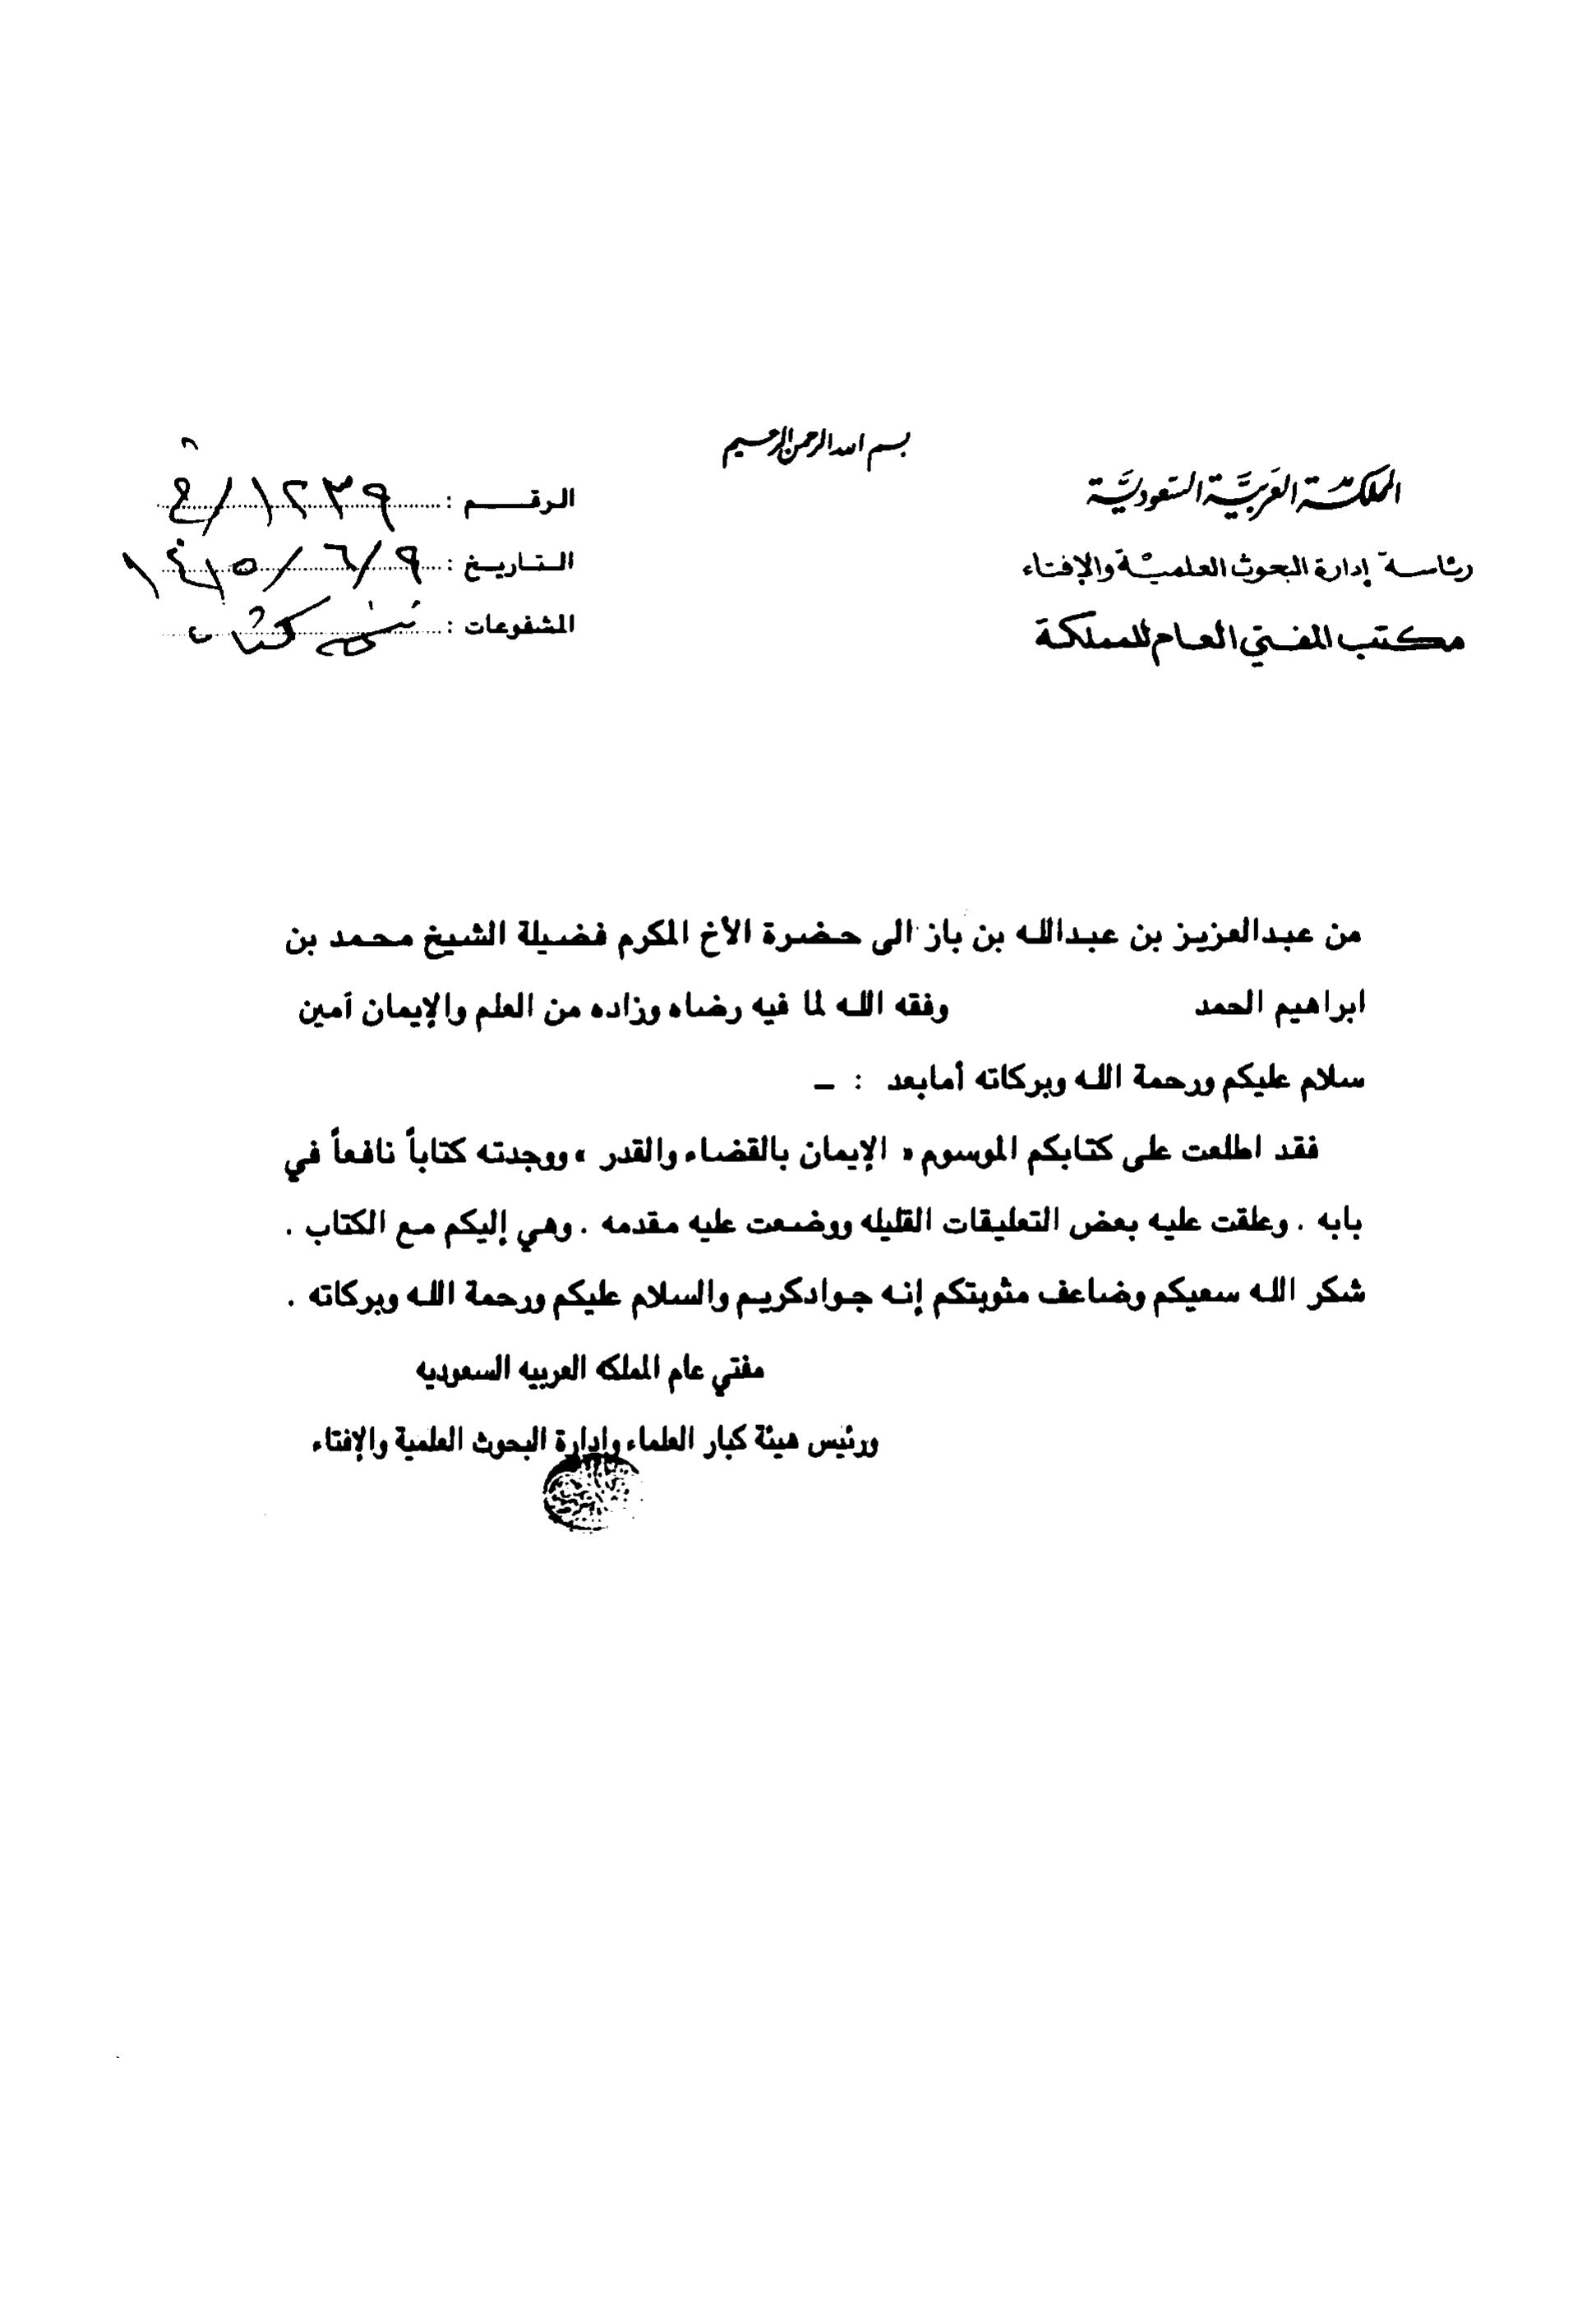 بسم الله الرحمن الرحيم
المملكة العربية السعودية
رئاسة إدارة البحوث العلمية والإفتاء
مكتب المفتي العام للمملكة
الرقم : ١٢٣٩/خ
التاريخ : ٩/٦/١٤١٥
المشفوعات :
من عبدالعزيز بن عبدالله بن باز الى حضرة الأخ المكرم فضيلة الشيخ محمد بن
ابراهيم الحمد وفقه الله لما فيه رضاه وزاده من العلم والإيمان آمين
سلام عليكم ورحمة الله وبركاته أمابعد : ــ
فقد اطلعت على كتابكم الموسوم « الإيمان بالقضاء والقدر » ووجدته كتاباً نافعاً في
بابه . وعلقت عليه بعض التعليقات القليله ووضعت عليه مقدمه . وهي إليكم مع الكتاب .
شكر الله سعيكم وضاعف مثوبتكم إنه جوادكريم والسلام عليكم ورحمة الله وبركاته .
مفتي عام المملكه العربيه السعوديه
ورئيس هيئة كبار العلماء وإدارة البحوث العلمية والإفتاء